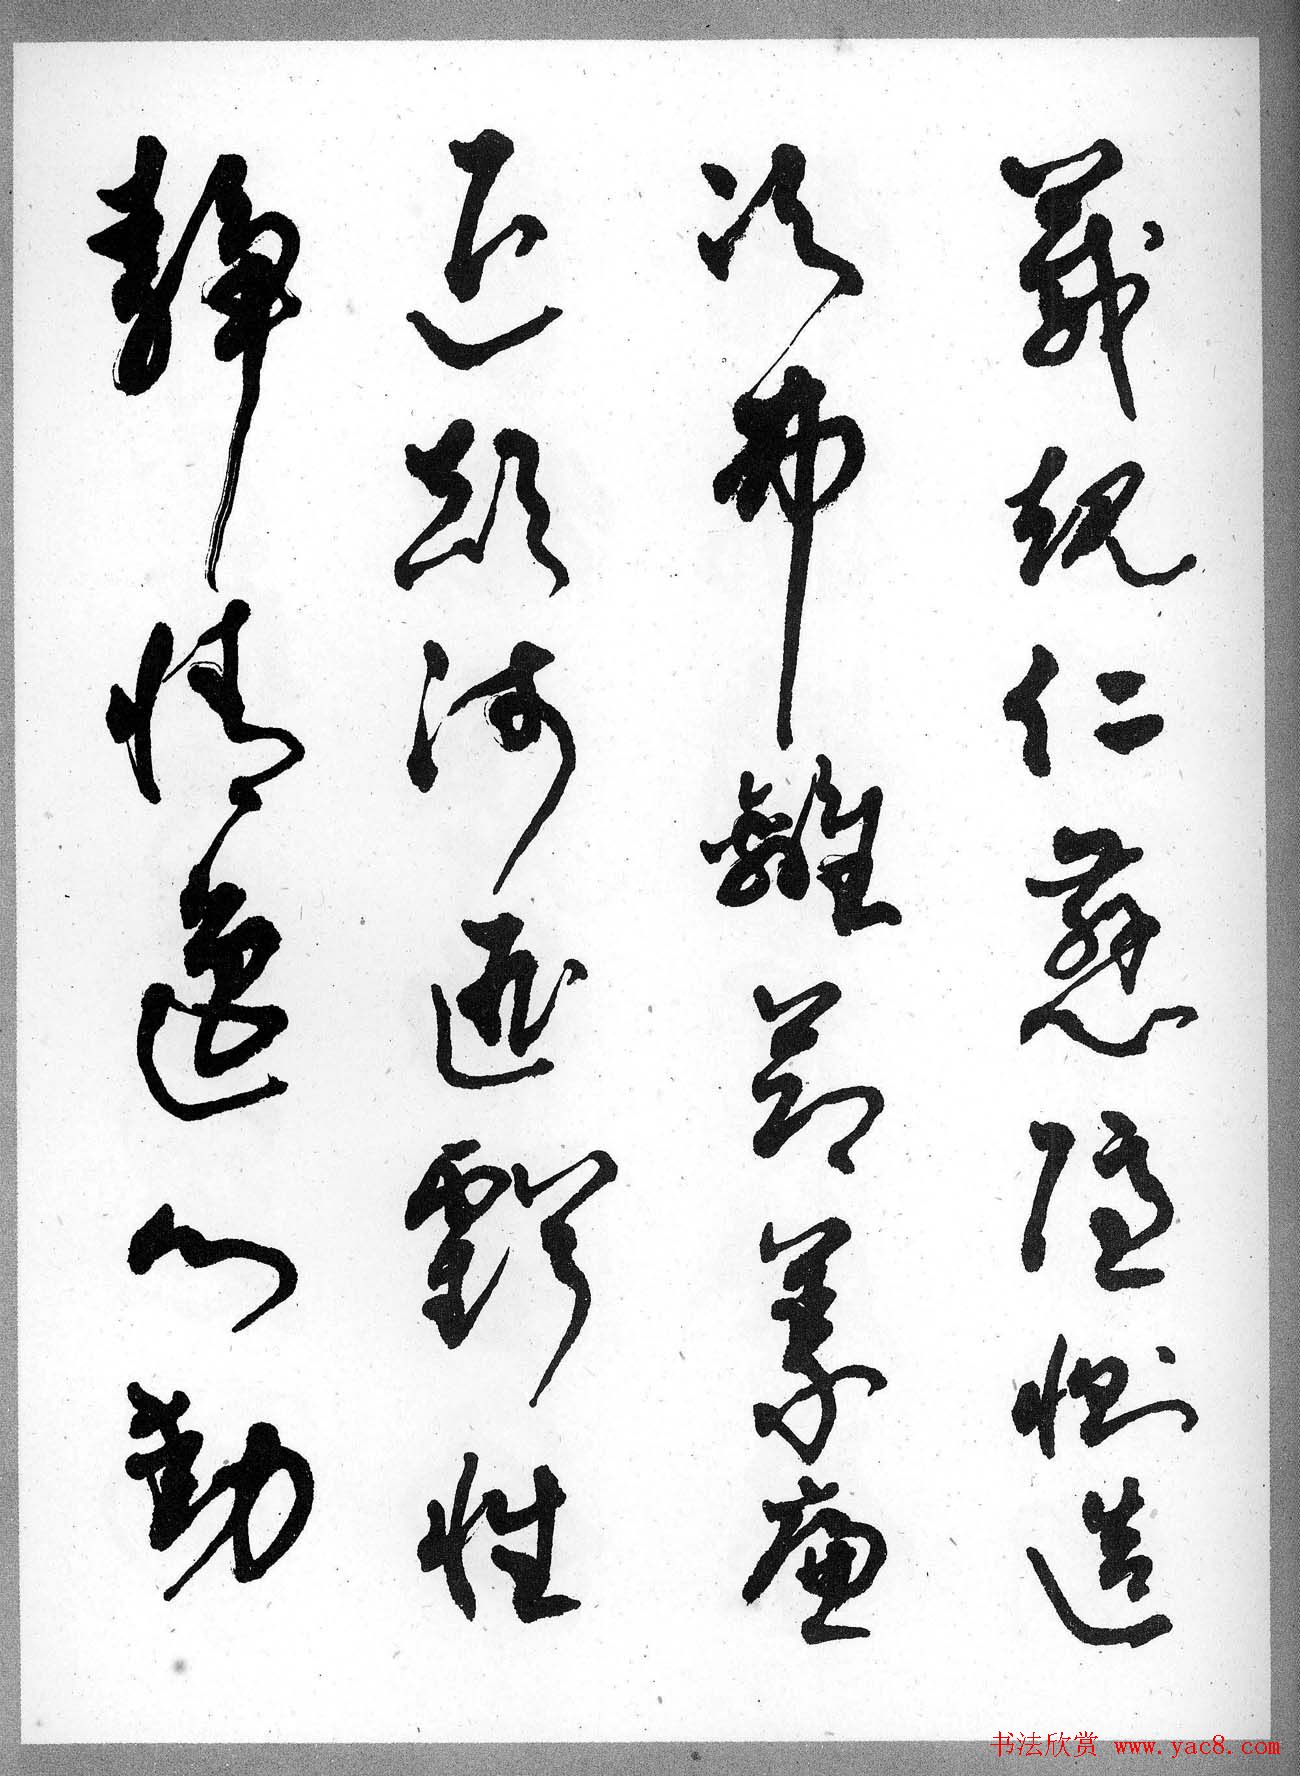 箴規仁慈隱惻造
次弗離節義廉
退顛沛匪虧性
靜情逸心動
书法欣赏 www.yac8.com